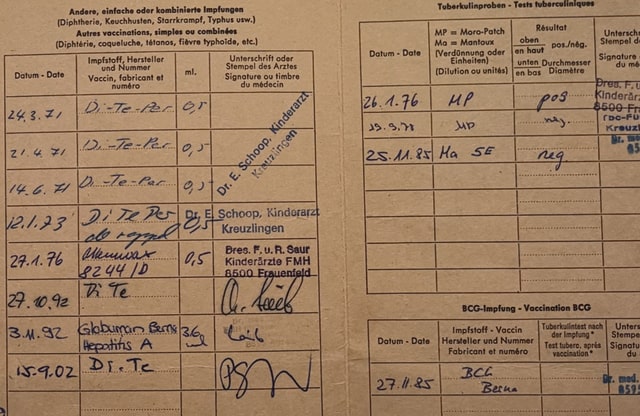 Andere, einfache oder kombinierte Impfungen
(Diphtherie, Keuchhusten, Starrkrampf, Typhus usw.)
Autres vaccinations, simples ou combinées
(Diphtérie, coqueluche, tétanos, fièvre typhoïde, etc.)
Datum - Date
Impfstoff, Hersteller
und Nummer
Voccin, fabricant et
numéro
ml.
Unterschrift oder
Stempel des Arztes
Signature ou timbre
du médecin
24.3.71 Di-Te-Per 0,5
21.4.71 Di-Te-Per 0,5
14.6.71 Di-Te-Per 0,5
Dr. E. Schoop, Kinderarzt
Kreuzlingen
12.1.73 Di Te Per 0,5 Dr. E. Schoop, Kinderarzt
Kreuzlingen
27.1.76 0,5
8244/D
Bres. F. u. R. Saur
Kinderärzte FMH
8500 Frauenfeld
27.10.92 Di Te
3.11.92 Globuman Berna 3.6
Hepatitis A ml
15.9.02 Di.Te
Tuberkulinproben - Tests tuberculiniques
Datum - Date
MP = Moro-Patch
Ma = Mantoux
(Verdünnung oder
Einheiten)
(Dilution ou unités)
Résultat
oben
en haut
pos./neg.
unten
en bas
Durchmesser
Diamètre
Unterschr
Stempel
Signature
du mé
26.1.76 MP pos
Bres. F. u
Kinderär
8500 Fra
MP neg.
25.11.85 Ma 5E neg
BCG-Impfung - Vaccination BCG
Datum - Date
Impfstoff - Vaccin
Hersteller und Nummer
Fabricant et numéro
Tuberkulintest nach
der Impfung*
Test tuberc. après
vaccination*
Unters
Stemp
Signatu
du
27.11.85 BCG
Berna
Dr. med.